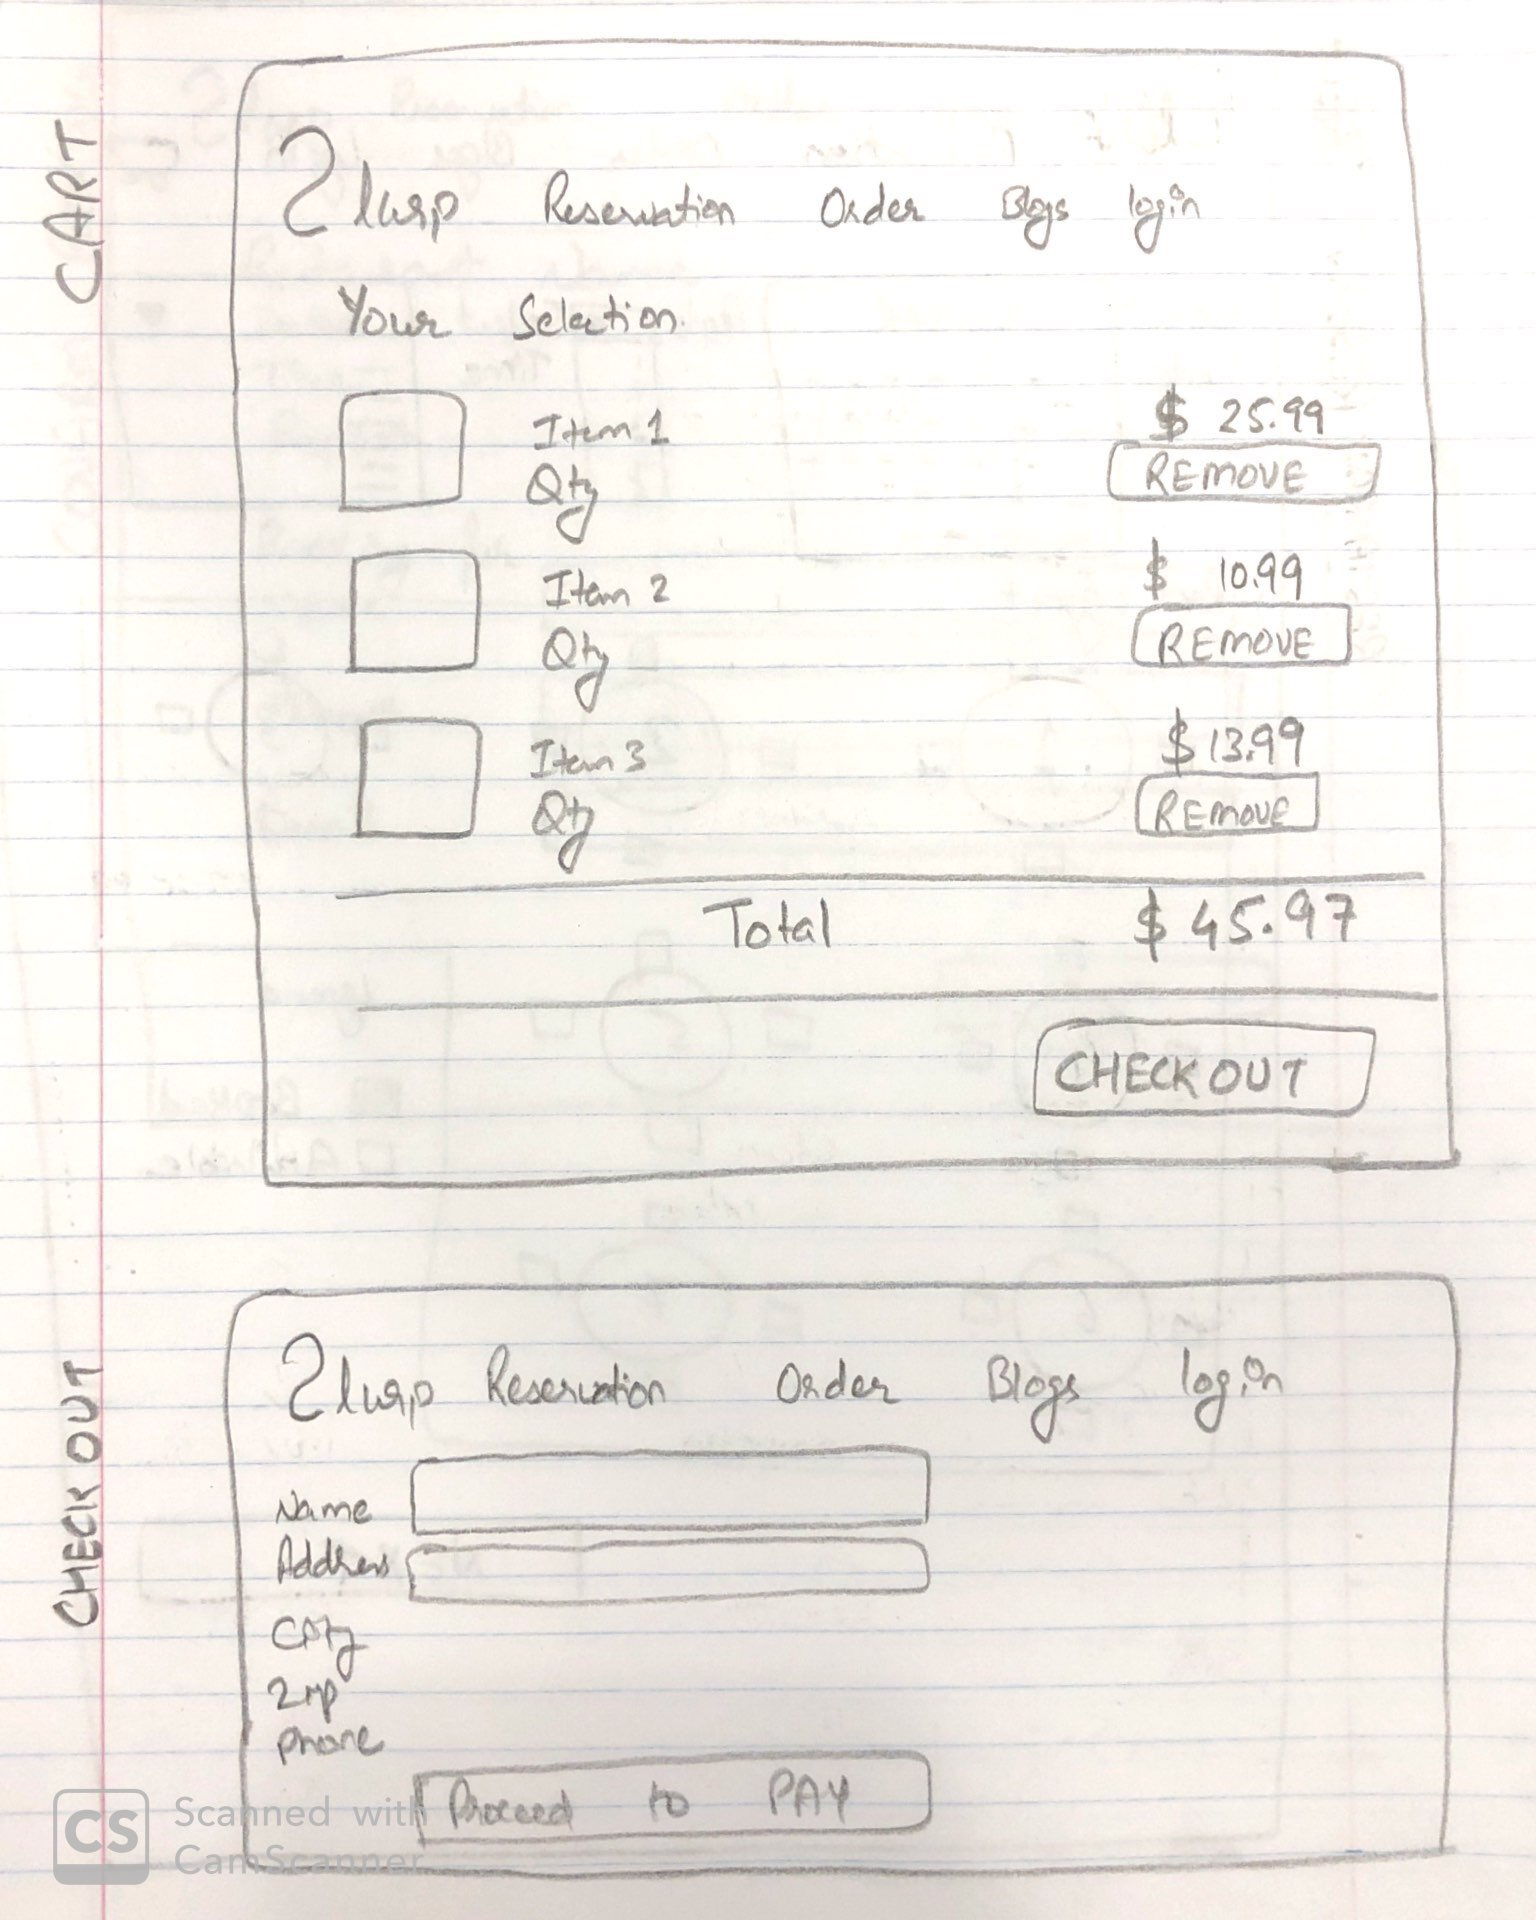 CART
Slurp Reservation Order Blogs login
Your Selection
Item 1 $ 25.99
Qty REMOVE
Item 2 $ 10.99
Qty REMOVE
Item 3 $ 13.99
Qty REMOVE
Total $ 45.97
CHECK OUT
CHECK OUT
Slurp Reservation Order Blogs login
Name
Address
City
Zip
phone
Proceed to PAY
CS Scanned with
CamScanner